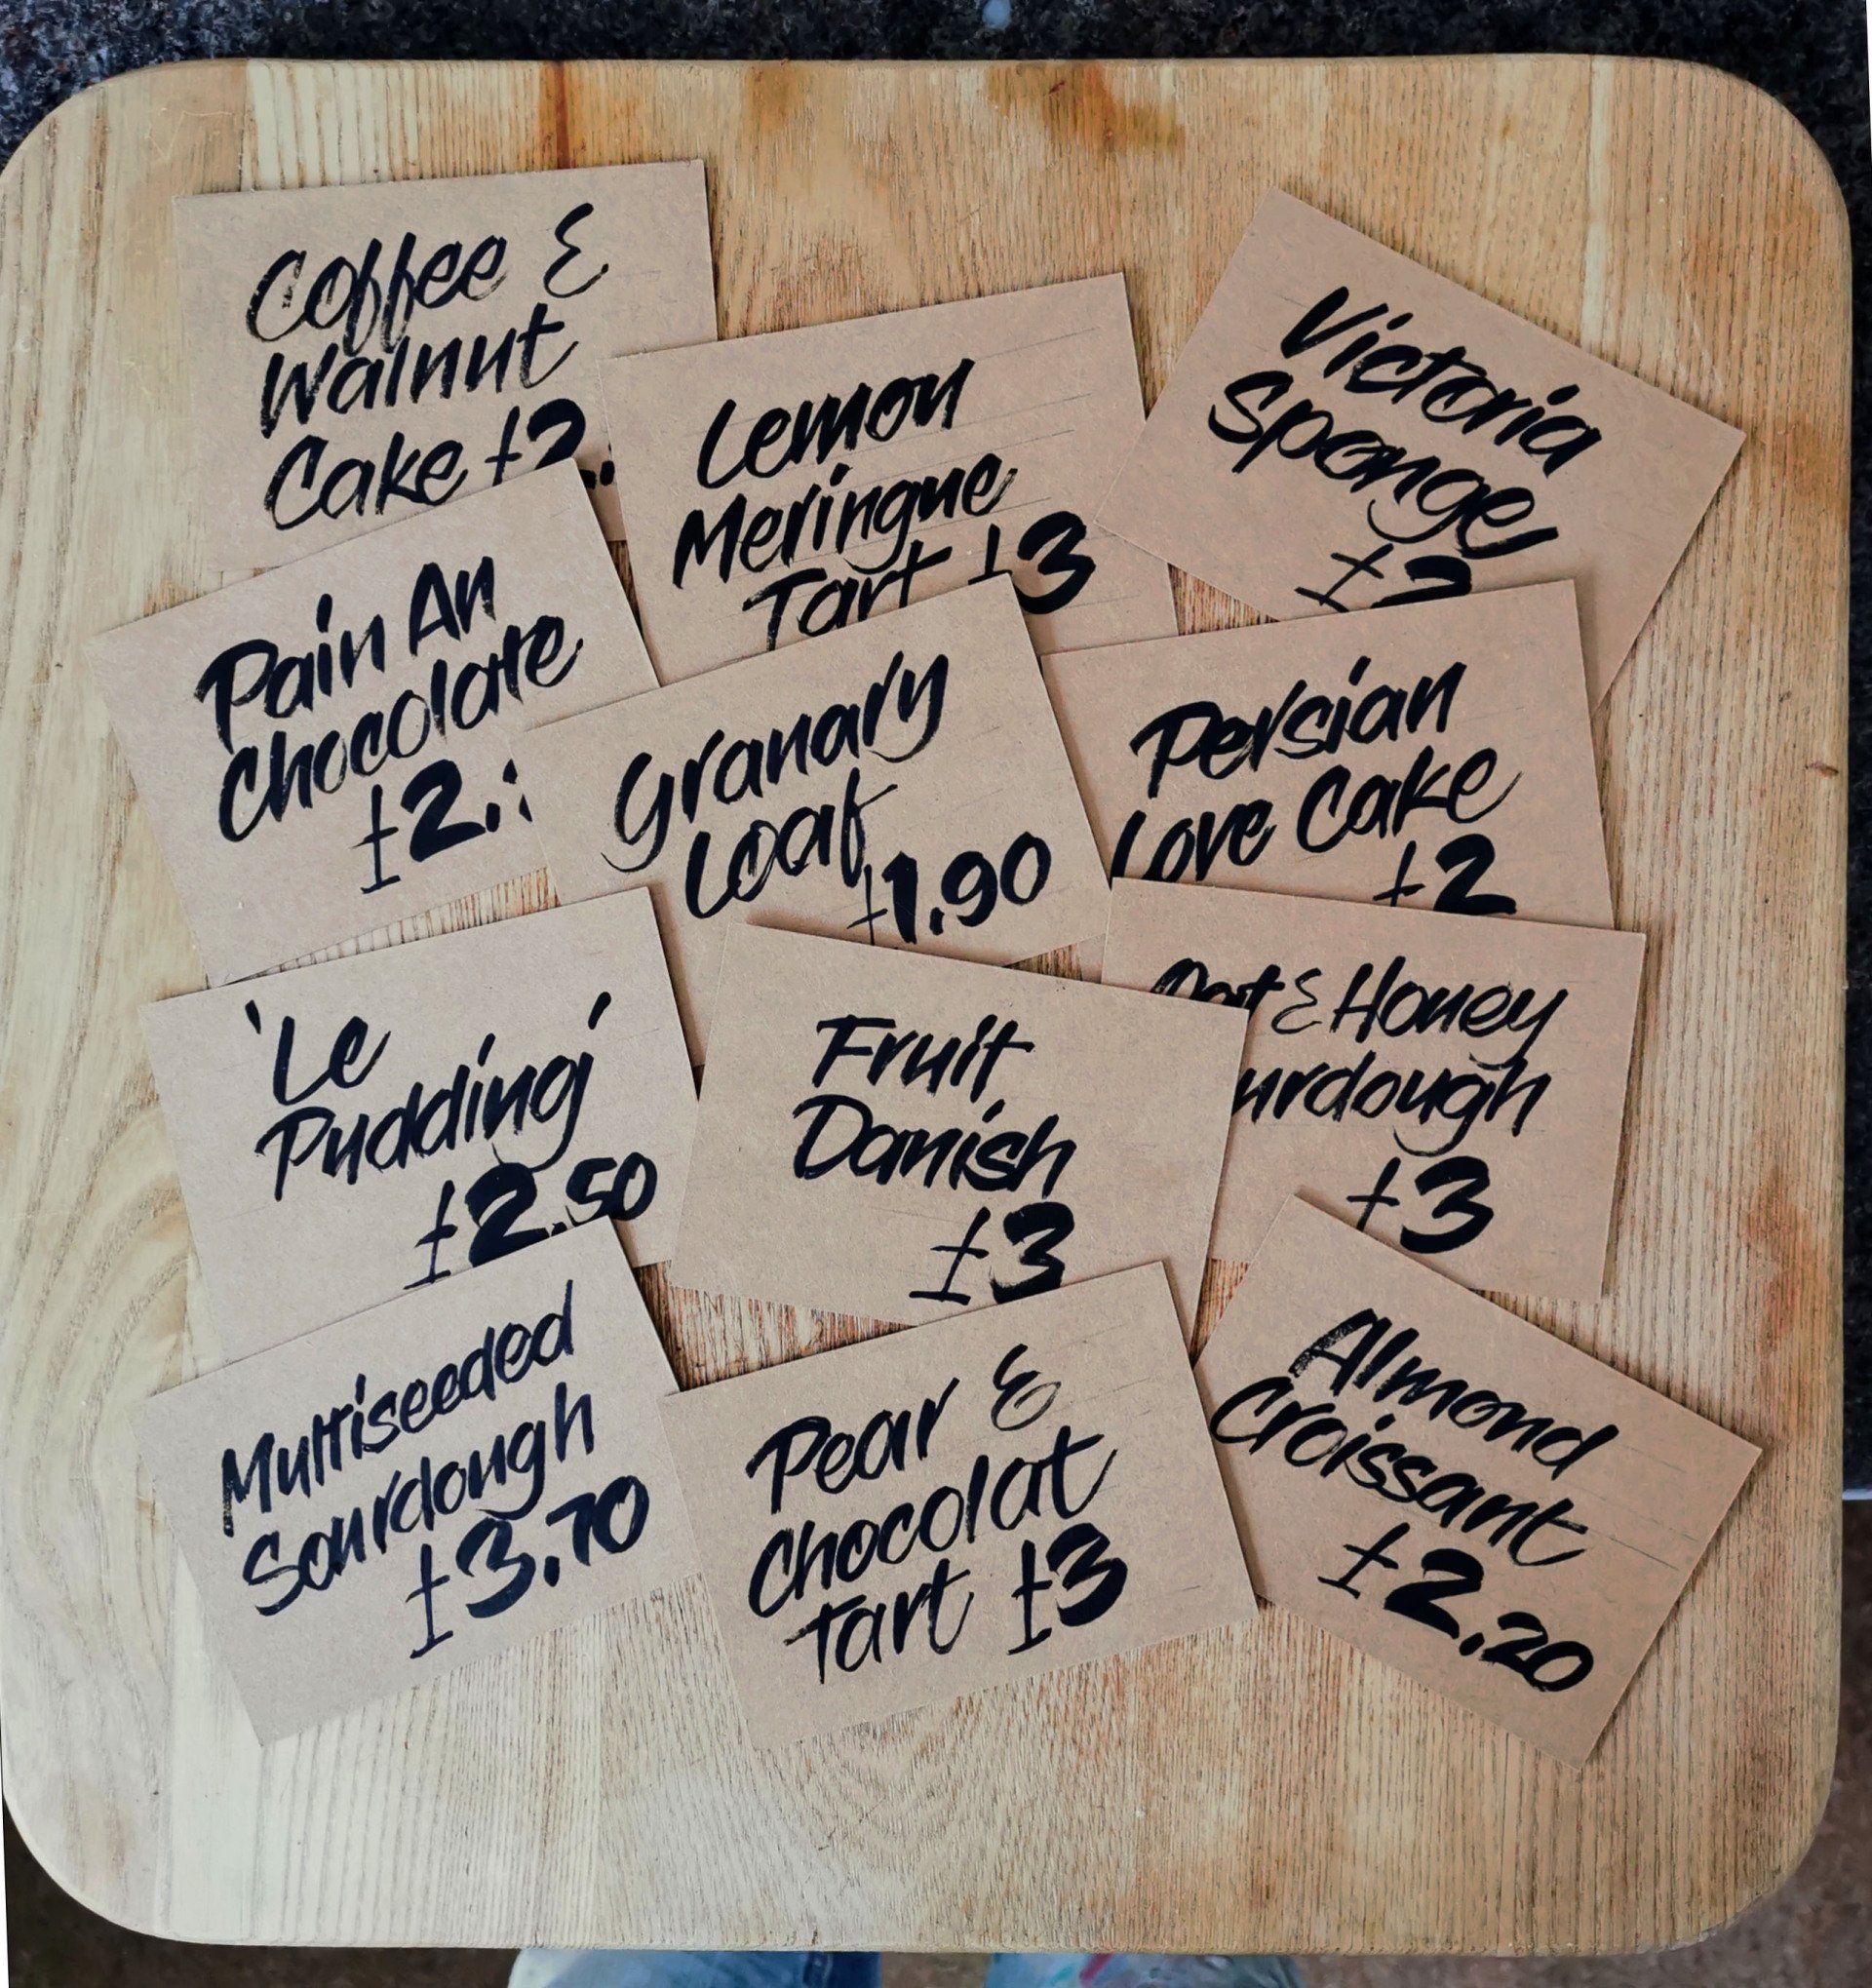 Coffee &
Walnut
Cake £2.
Lemon
Meringue
Tart £3
Victoria
Sponge
Pain Au
Chocolate
£2.
Granary
Loaf
£1.90
Persian
Love Cake
£2
'Le
Pudding'
£2.50
Fruit
Danish
£3
Oat & Honey
urdough
£3
Multiseeded
Sourdough
£3.70
Pear &
Chocolat
Tart £3
Almond
Croissant
£2.20